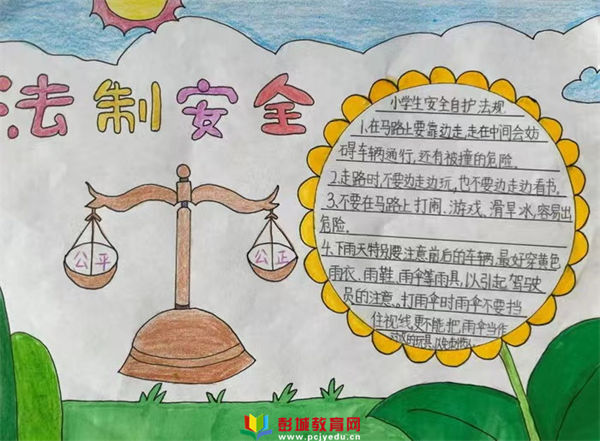 法制安全
公平
公正
小学生安全自护法规
1.在马路上要靠边走,走在中间会妨
碍车辆通行,还有被撞的危险。
2.走路时不要边走边玩,也不要边走边看书。
3.不要在马路上打闹、游戏、滑旱冰,容易出
危险。
4.下雨天特别要注意前后的车辆,最好穿黄色
雨衣、雨鞋、雨伞等雨具,以引起驾驶
员的注意。打雨伞时雨伞不要挡
住视线,更不能把雨伞当作
彭城教育网
www.pcjyedu.cn